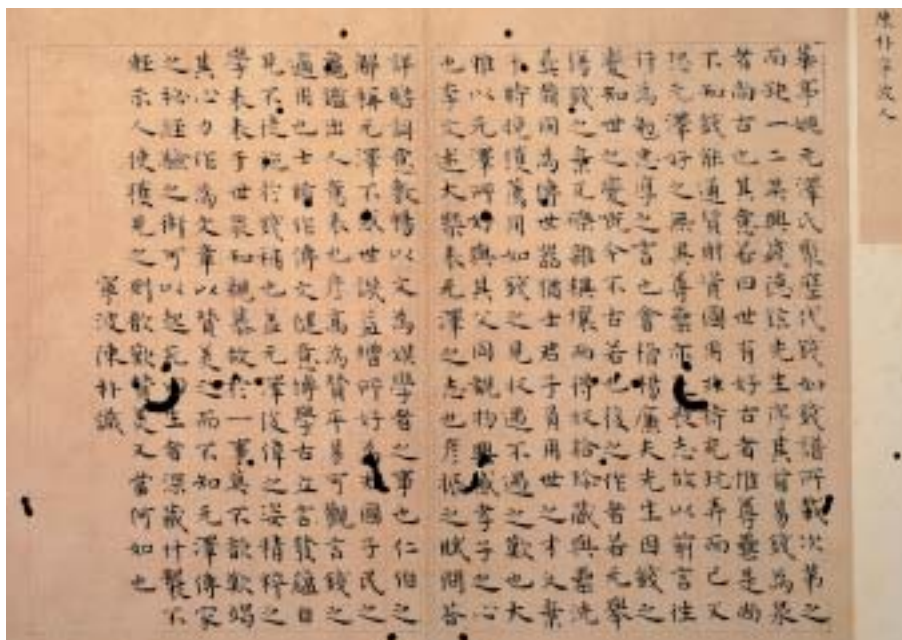 陳朴寧波人
華亭姚元澤氏聚歷代錢如錢譜所載次第之
而 一二其興 德 先生深其旨易錢為泉
者尚古也其意若曰世有好古者惟尊彝是尚
不知錢能通貨財資國用 玩弄而已又
恐元澤好之無異尊彝亦 喪志故以前言往
行為勉忠導之言也會稽楊廉夫先生因錢之
變知世之變況今不古若也後之作者若元舉
傷錢之棄瓦礫雜糞壤而得收拾珍藏與
翁同為傳世器猶士君子負用世之才又棄
時 萬用如錢之見收遇不遇之歎也大
惟以元澤所好與其父同觀物興感孝子之心
也孝文述大槩表元澤之志也彦振之賦問答
詳贍詞意敷暢以文為娛學者之事也仁伯之
解稱元澤不惑世 益增所好為有國子民之
龜鑑出人意表也序高為賛平易可觀言錢之
適用也士瞻作傳文健意博學古立言發蘊日
見不徒玩於錢 也 元澤 偉之姿精 之
學未表于世衆知 慕故於一事莫不歆歎竭
其心力作為文章以賛美之而不知元澤傳家
之秘經驗之術可以起死回生者深藏什襲不
輕示人使獲見之則歆歎賛美又當何如也
寧波陳朴識